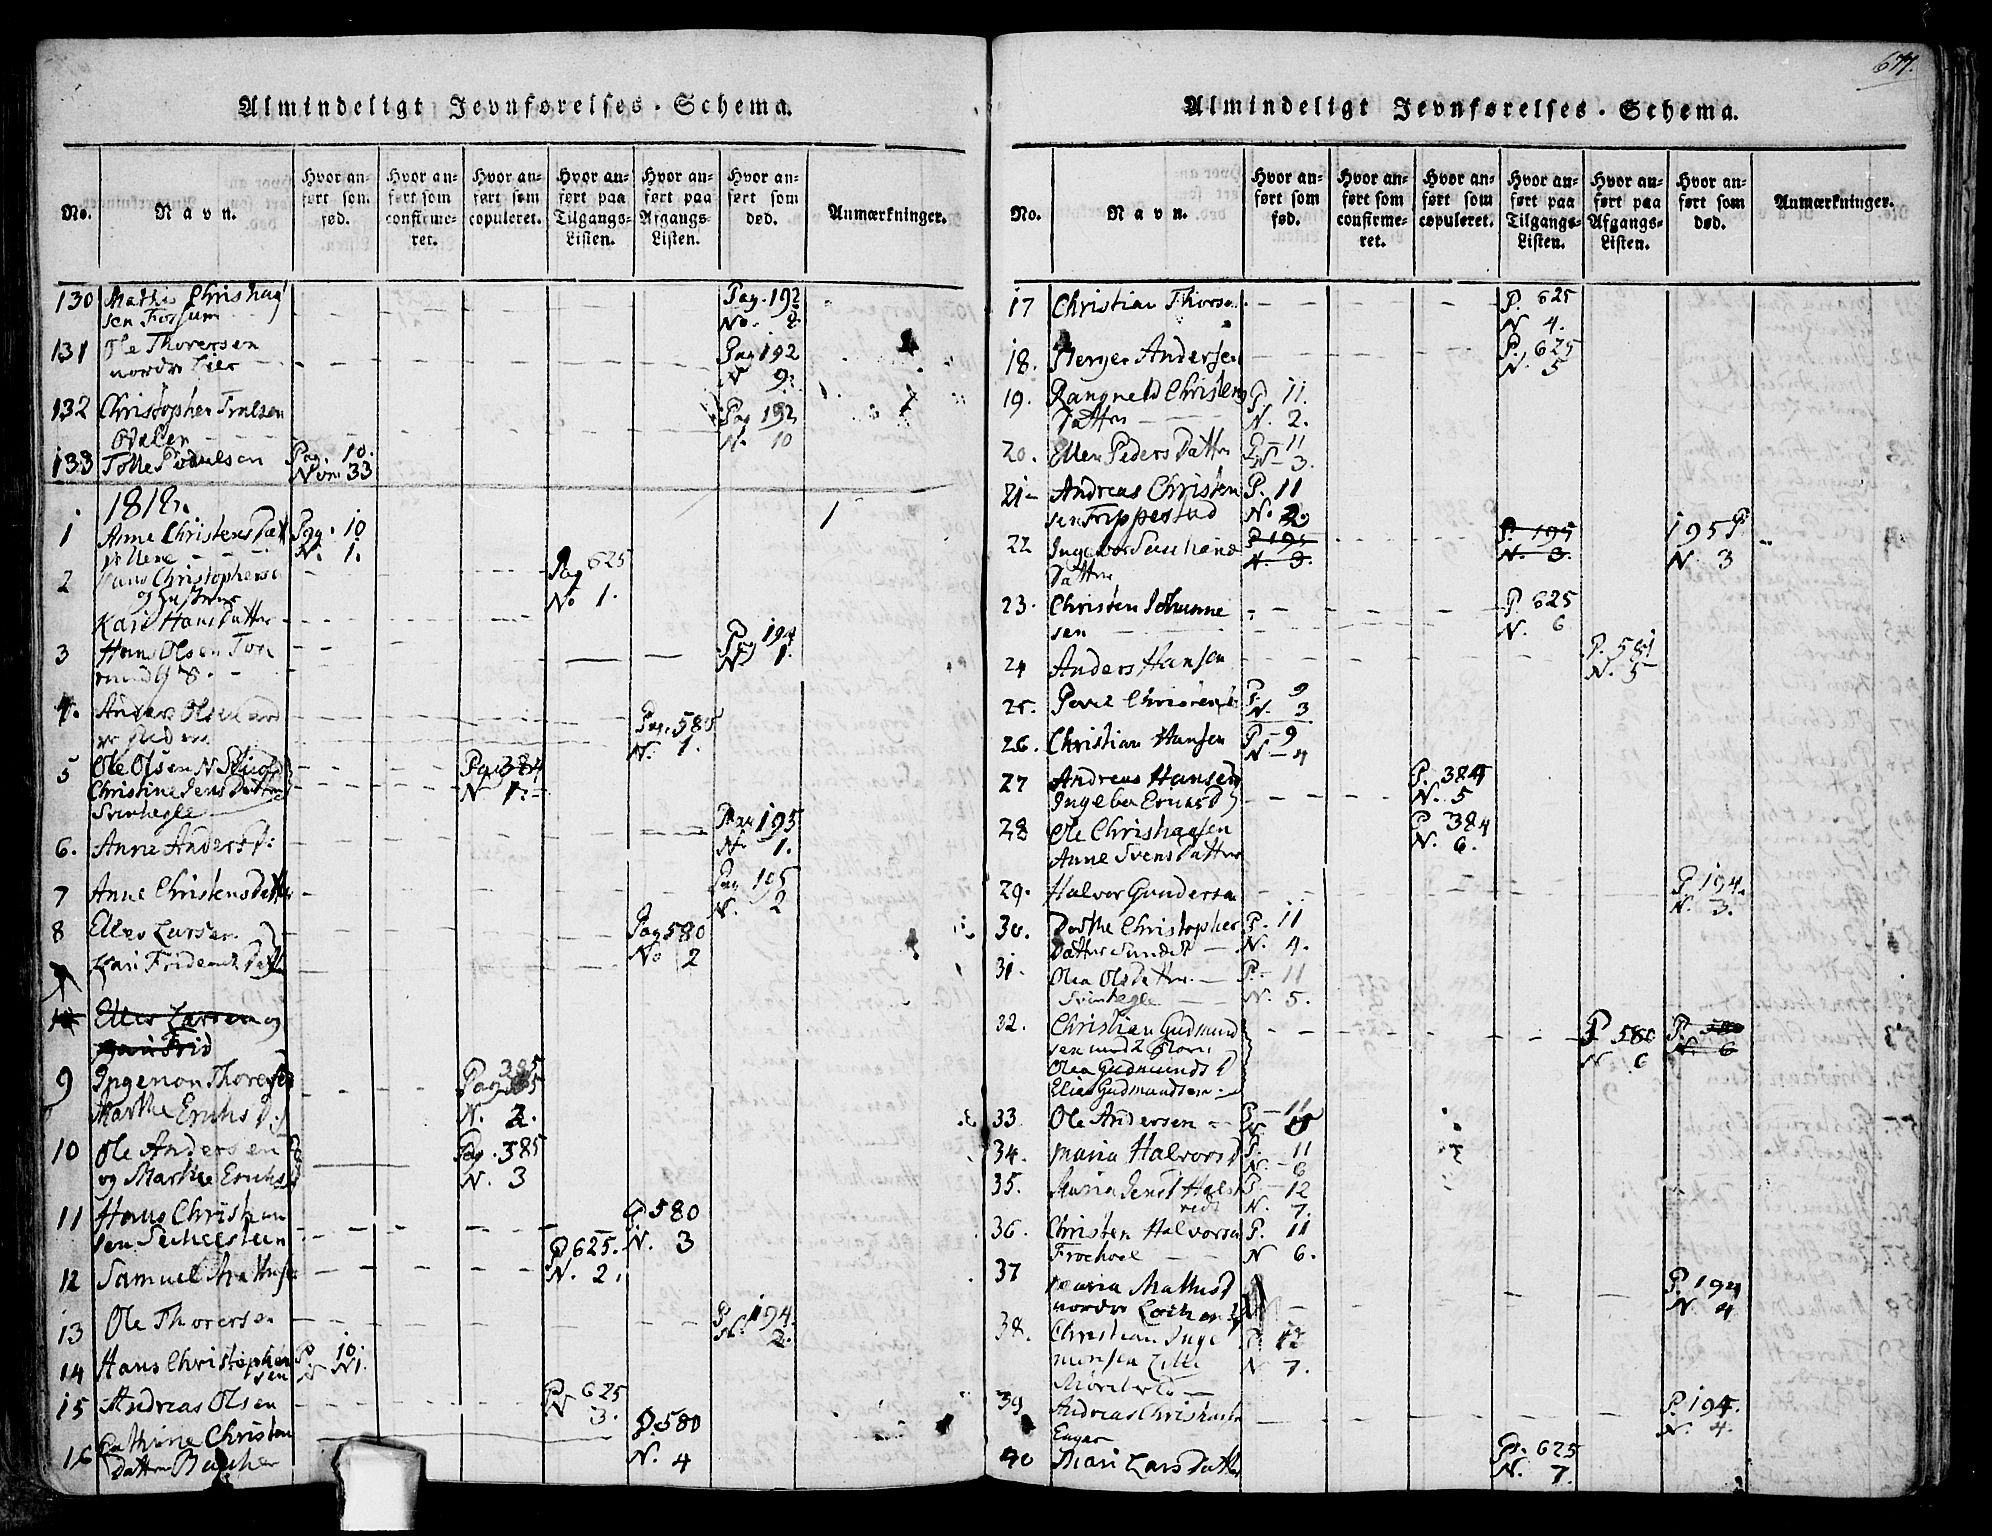 Almindeligt Jevnførelses-Schema.
No.
Navn.
Hvor anført som fød.
Hvor anført som confirmeret.
Hvor anført som copuleret.
Hvor anført paa Tilgangs-Listen.
Hvor anført paa Afgangs-Listen.
Hvor anført som død.
Anmærkninger.
130 Mathis
sen Fossum Pag. 192
No. 8
131 Ole Thorersen Pag 192
nordre Lier N 9.
132 Christopher Trulsen Pag 192
Odalen N. 10
133 Tolle Poulsen Pag. 10.
Nom 33
1818.
1 Anne Christens Dat Pag. 10
N. 1.
2 Hans Christophersen Pag 625
og Hustrue No 1.
Kari Hans Datter
3 Hans Olsen Pag 194
N 1.
4. Anders Olsen Pag. 585
N. 1.
5 Ole Olsen N Pag 384
Christine Jens Datter N 1.
Svinhegle
6. Anne Anders D: Pag 195
N. 1.
7 Anne Christensdatter Pag 195
N. 2
8 Elles Larsen Pag 580
Kari Friderich Datt No 2
Elles Larsen og
9 Ingemon Thorersen 385
Pag
Marthe Erichs D: N. 2.
10 Ole Andersen Pag. 385
og Marthe Erichs N. 3
11 Hans Christian P 580
sen N. 3
P 625.
12 Samuel N. 2.
13 Ole Thorersen P 194.
2.
14 Hans Christophersen P 10.
N 1.
15 Andreas Olsen P 625
N 3.
16 Cathrine Christen P. 580
Datter N. 4
677.
Almindeligt Jevnførelses-Schema.
No.
Navn.
Hvor anført som fød.
Hvor anført som confirmeret.
Hvor anført som copuleret.
Hvor anført paa Tilgangs-Listen.
Hvor anført paa Afgangs-Listen.
Hvor anført som død.
Anmærkninger.
17 Christian Thorsen P. 625
N 4.
18. Herger Andersen P. 625
N. 5
19. Rangneld Christens P 11.
Datter N. 2.
20. Ellen Peders Datter P- 11
N- 3.
21- Andreas Christen P. 11
sen Frippestad N. 2
22 Ingebor P 195 P. 195 195 P
Datter N. 3. N. 3. N. 3
23. Christen Johanne P. 625
sen N. 6
24 Anders Hansen P. 581
N. 5
25. P. 9
N. 3
26. Christian Hansen P- 9
N- 4
27 Andreas Hansen P. 384
Ingebor Erichs D N. 5
28 Ole P 384
Anne Svens Datter N. 6.
29. Halvor Gunders P 194.
N. 3.
30. Dorthe Christopher P. 11
Datter N. 4.
31. Olea Ols Datter P. 11
Svinhegle N. 5.
32. Christian Gudmund P 580 P. 580
sen med 2 Børn N 6 N. 6
Olea Gudmunds D
Elias Gudmundsen
33. Ole Andersen P- 11
34. Maria Halvors D P. 11
N- 6
35. Maria Jens D P- 12
N. 7.
36. Christen Halvorsen P. 11
N 6.
37 Maria Mathis D P. 194
nordre N. 4
38. Christian Inge P. 12
monsen Lille N 7.
39 Andreas Christian P. 194.
Enger N. 4.
40 Mari Lars Datter P. 625
N. 7.